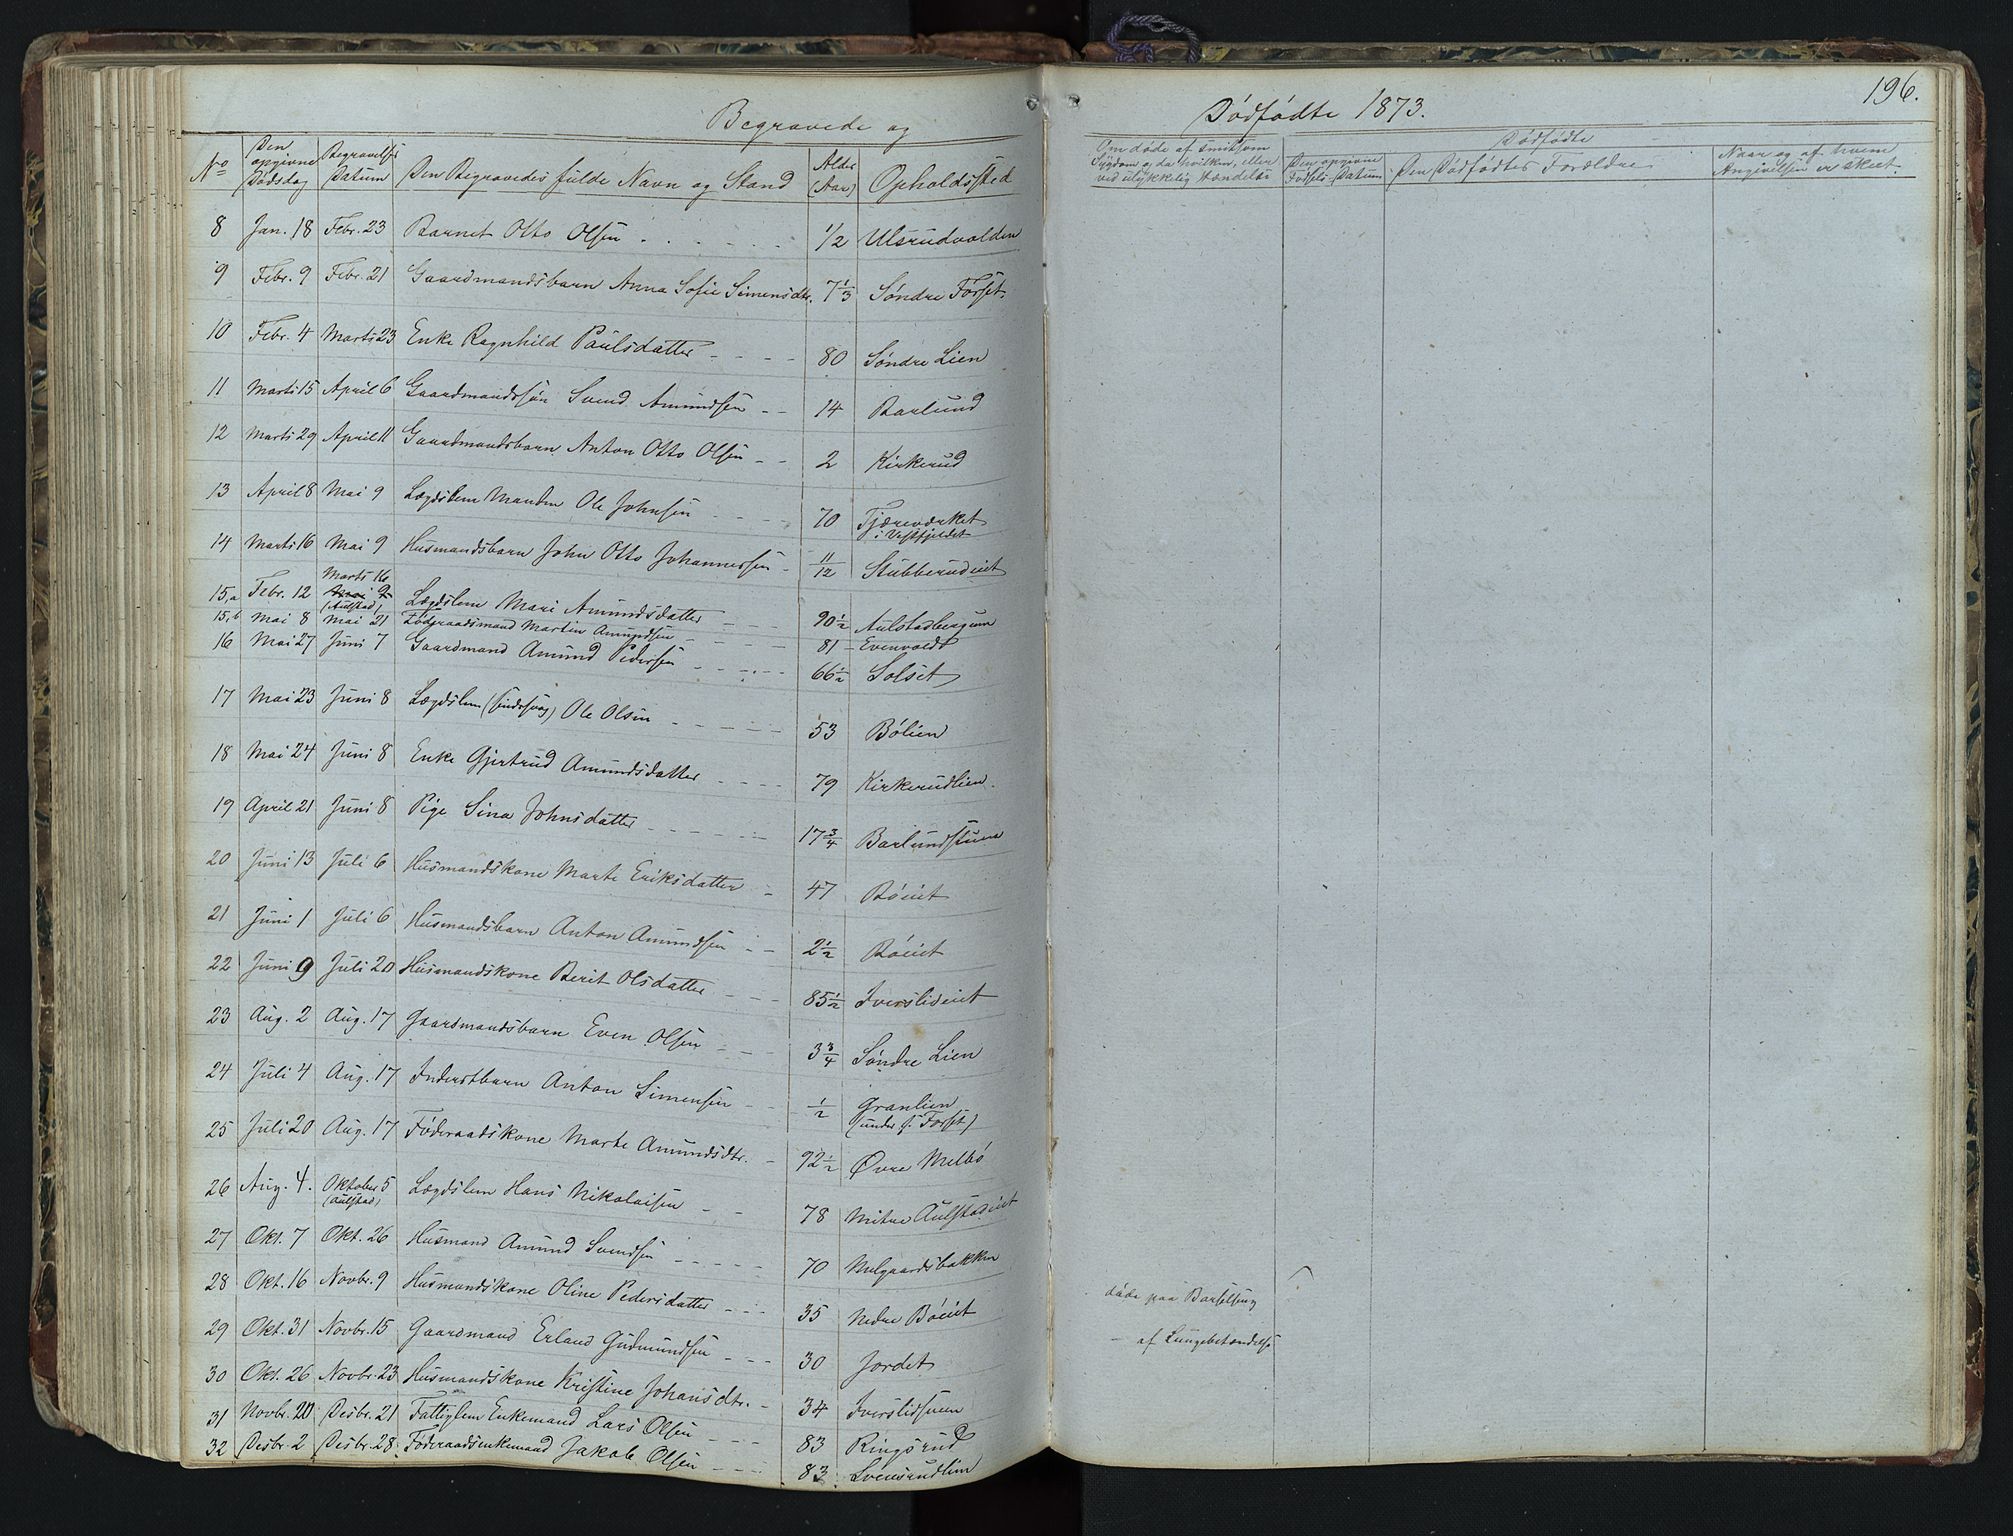 Begravede og
No
Den opgivne Dødsdag
Begravelses Datum
Den Begravedes fulde Navn og Stand
Alder (Aar)
Opholdssted
8 Jan. 18 Febr. 23 Barnet Otto Olsen 1/2 Ulsrudvolden
9 Febr. 9 Febr. 21 Gaardmandsbarn Anna Sofie Simensdtr. 7 1/3 Søndre Forset.
10 Febr. 4 Marts 23 Enke Ragnhild Paulsdatter 80 Søndre Lien
11 Marts 15 April 6 Gaardmandssøn Svend Amundsen 14 Barlund
12 Marts 29 April 11 Gaardmandsbarn Anton Otto Olsen 2 Kirkerud
13 April 8 Mai 9 Lægdslem Manden Ole Johnsen 70 Tjæreværket
i Vestfjeldet
14 Marts 16 Mai 9 Husmandsbarn John Otto Johannessen 11/12 Stubberudeiet
Marts 16
15,a Febr. 12 Mai 9 (Aulstad) Lægdslem Mari Amundsdatter 90 1/2 Aulstadbergum
15,b Mai 8 Mai 21 Føderaadsmand Martin Amundsen 81 Evenvoldt
16 Mai 27 Juni 7 Gaardmand Amund Pedersen 66 1/2 Solset
17 Mai 23 Juni 8 Lægdslem (sindssvag) Ole Olsen 53 Bølien
18 Mai 24 Juni 8 Enke Gjertrud Amundsdatter 79 Kirkerudlien
19 April 21 Juni 8 Pige Sina Johnsdatter 17 3/4 Barlundstuen
20 Juni 13 Juli 6 Husmandskone Marte Eriksdatter 47 Bøeiet
21 Juni 1 Juli 6 Husmandsbarn Anton Amundsen 2 1/2 Bøeiet
22 Juni 9 Juli 20 Husmandskone Berit Olsdatter 85 1/2 Iverslieiet
23 Aug. 2 Aug. 17 Gaardmandsbarn Even Olsen 3 3/4 Søndre Lien
24 Juli 4 Aug. 17 Inderstbarn Anton Simensen 1/2 Granlien
(under S. Forset)
25 Juli 20 Aug. 17 Føderaadskone Marte Amundsdtr. 92 1/2 Øvre Melbø
26 Aug. 4. Oktober 5 (Aulstad) Lægdslem Hans Nikolaisen 78 Mitre Aulstadeiet
27 Okt. 7 Okt. 26 Husmand Amund Svendsen 70 Melgaardsbakken
28 Okt. 16 Novbr. 9 Husmandskone Oline Pedersdatter 35 Nedre Bøeiet
29 Okt. 31 Novbr. 15 Gaardmand Erland Gudmundsen 30 Jordet
30 Okt. 26 Novbr. 23 Husmandskone Kristine Johansdtr. 34 Iverslistuen
31 Novbr. 20 Desbr. 21 Fattiglem Enkemand Lars Olsen 83 Ringsrud
32 Desbr. 2 Desbr. 28. Føderaadsenkemand Jakob Olsen 83 Svensrudlien
196.
Dødfødte 1873.
Om døde af smitsom Sygdom og da hvilken, eller ved ulykkelig Hændelse
Dødfødte
Den opgivne Fødsels-Datum
Den Dødfødtes Forældre
Naar og af hvem Angivelsen er skeet.
døde paa Barselseng
– af Lungebetændelse